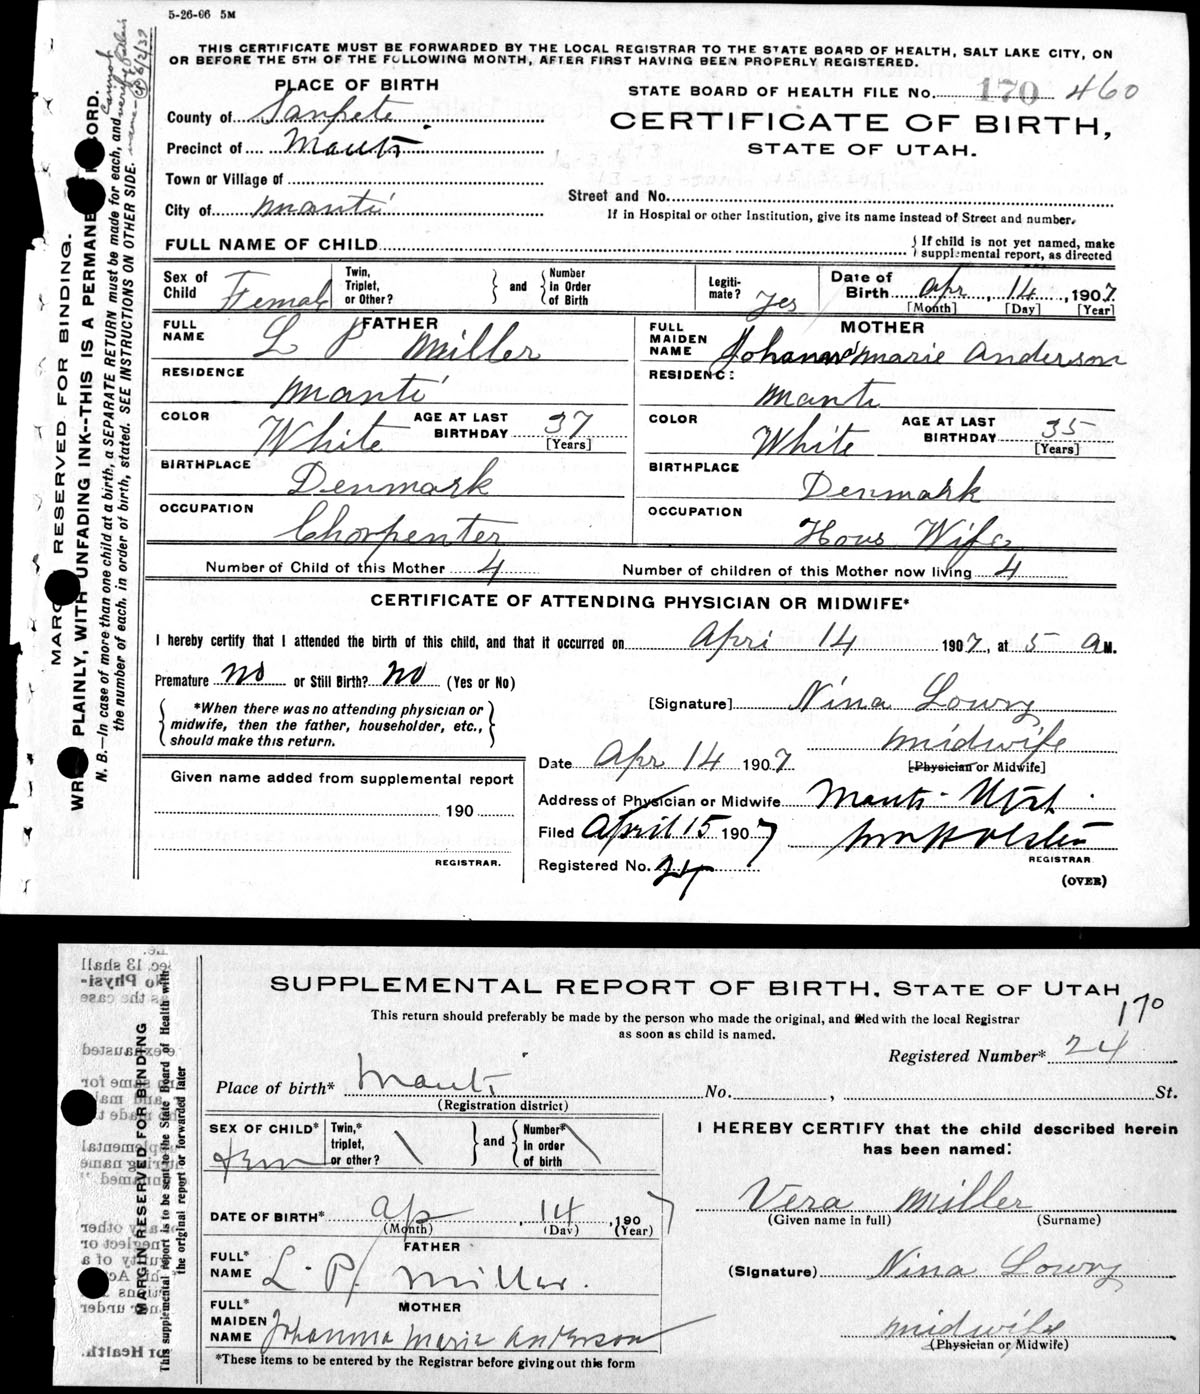 5-26-06 5M
THIS CERTIFICATE MUST BE FORWARDED BY THE LOCAL REGISTRAR TO THE STATE BOARD OF HEALTH, SALT LAKE CITY, ON
OR BEFORE THE 5TH OF THE FOLLOWING MONTH, AFTER FIRST HAVING BEEN PROPERLY REGISTERED.
PLACE OF BIRTH
STATE BOARD OF HEALTH FILE No. 170 460
County of Sanpete
CERTIFICATE OF BIRTH,
Precinct of Manti
STATE OF UTAH.
Town or Village of
Street and No.
City of Manti
If in Hospital or other Institution, give its name instead of Street and number.
FULL NAME OF CHILD
{ If child is not yet named, make
supplemental report, as directed
Sex of Child Female
Twin, Triplet, or Other? } and { Number in Order of Birth
Legiti- mate? Yes
Date of Birth Apr, 14, 1907
[Month] [Day] [Year]
FATHER
FULL NAME L P Miller
MOTHER
FULL MAIDEN NAME Johanna Marie Anderson
RESIDENCE Manti
RESIDENCE: Manti
COLOR White AGE AT LAST BIRTHDAY 37 [Years]
COLOR White AGE AT LAST BIRTHDAY 35 [Years]
BIRTHPLACE Denmark
BIRTHPLACE Denmark
OCCUPATION Chorpenter
OCCUPATION Hous Wife
Number of Child of this Mother 4 Number of children of this Mother now living 4
CERTIFICATE OF ATTENDING PHYSICIAN OR MIDWIFE*
I hereby certify that I attended the birth of this child, and that it occurred on Apri 14 1907, at 5 A M.
Premature No or Still Birth? No (Yes or No)
*When there was no attending physician or
midwife, then the father, householder, etc.,
should make this return.
[Signature] Nina Lowry
midwife
[Physician or Midwife]
Date Apr 14 1907
Given name added from supplemental report
190
REGISTRAR.
Address of Physician or Midwife Manti - Utah.
Filed April 15 1907
REGISTRAR
Registered No. 24
(OVER)
MARGIN RESERVED FOR BINDING.
PLAINLY, WITH UNFADING INK--THIS IS A PERMANE
N. B.—In case of more than one child at a birth, a SEPARATE RETURN must be made for each, and
the number of each, in order of birth, stated. SEE INSTRUCTIONS ON OTHER SIDE.
SUPPLEMENTAL REPORT OF BIRTH, STATE OF UTAH
170
This return should preferably be made by the person who made the original, and filed with the local Registrar
as soon as child is named.
Registered Number* 24
Place of birth* Manti No. , St.
(Registration district)
SEX OF CHILD* Fem
Twin,* triplet, or other? \ } and { Number* in order of birth \
I HEREBY CERTIFY that the child described herein
has been named:
Vera Miller
(Given name in full) (Surname)
DATE OF BIRTH* Ap, 14, 1907
(Month) (Day) (Year)
FATHER
FULL* NAME L. P. Miller.
(Signature) Nina Lowry
MOTHER
FULL* MAIDEN NAME Johanna Marie Anderson
midwife
(Physician or Midwife)
*These items to be entered by the Registrar before giving out this form
MARGIN RESERVED FOR BINDING
This supplemental report is to be sent to the State Board of Health with
the original report or forwarded later